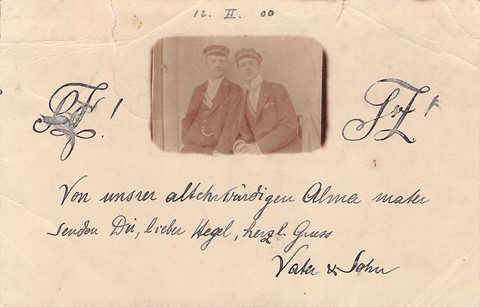 12. II. 00
Von unsrer altehrwürdigen Alma mater
senden Dir, lieber Hegel, herzl. Gruss
Vater & Sohn